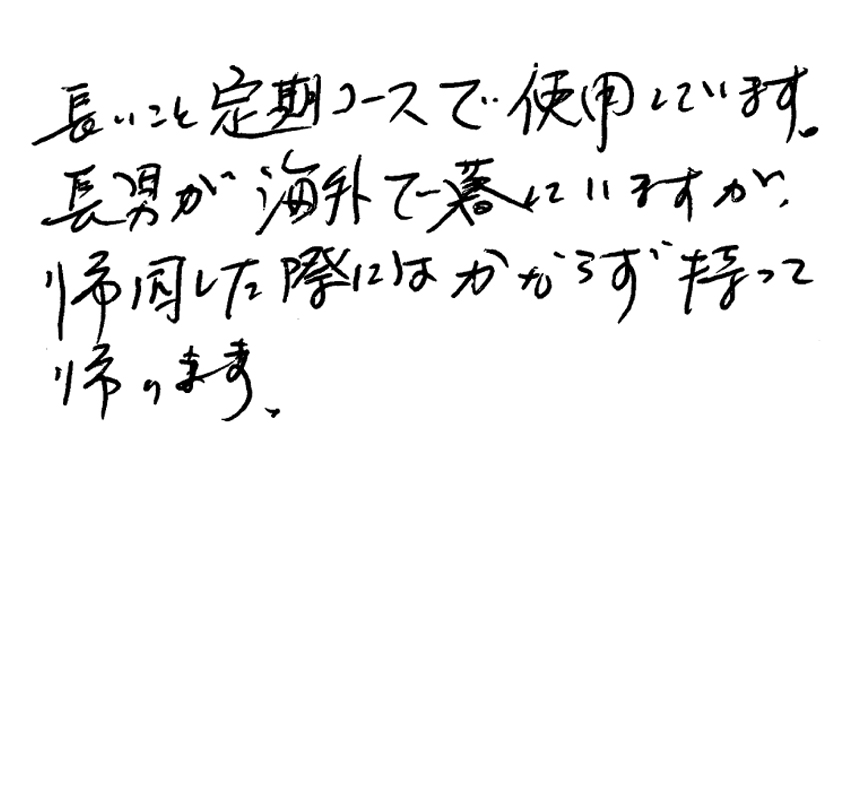 長いこと定期コースで使用しています。
長男が海外で暮しいますが、
帰国した際にはかならず持って
帰ります。